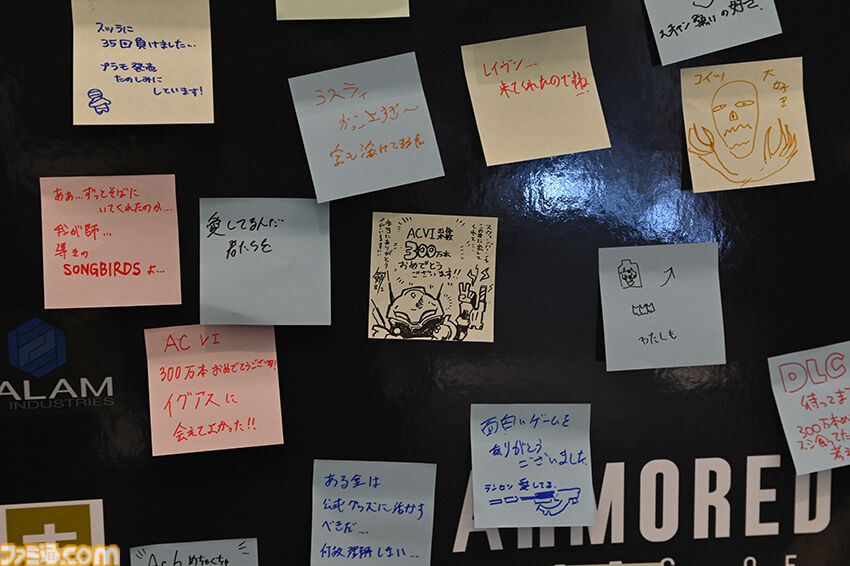 スッラに
35回負けました、
プラモ発売
たのしみに
しています!
ラスティ
かっこ上すぎ〜
レイヴン...
来てくれたのですね
コイツ
大好き
ああ...ずっとそばに
いてくれたのか...
我が師...
導きの
SONGBIRDS よ...
愛してるんだ
君たちを
ACVI 采配
300万本
おめでとう
ございます!!
わたしも
ALAM
INDUSTRIES
AC VI
300万本おめでとうございます!
イグアスに
会えてよかった!!
DLC
待ってま
300万本め
面白いゲームを
ありがとう
ございました。
テンロン愛してる。
ある金は
公式グッズに活かす
べきだ...
何故理解しない...
ARMORED
ファミ通.com
めちゃくちゃ